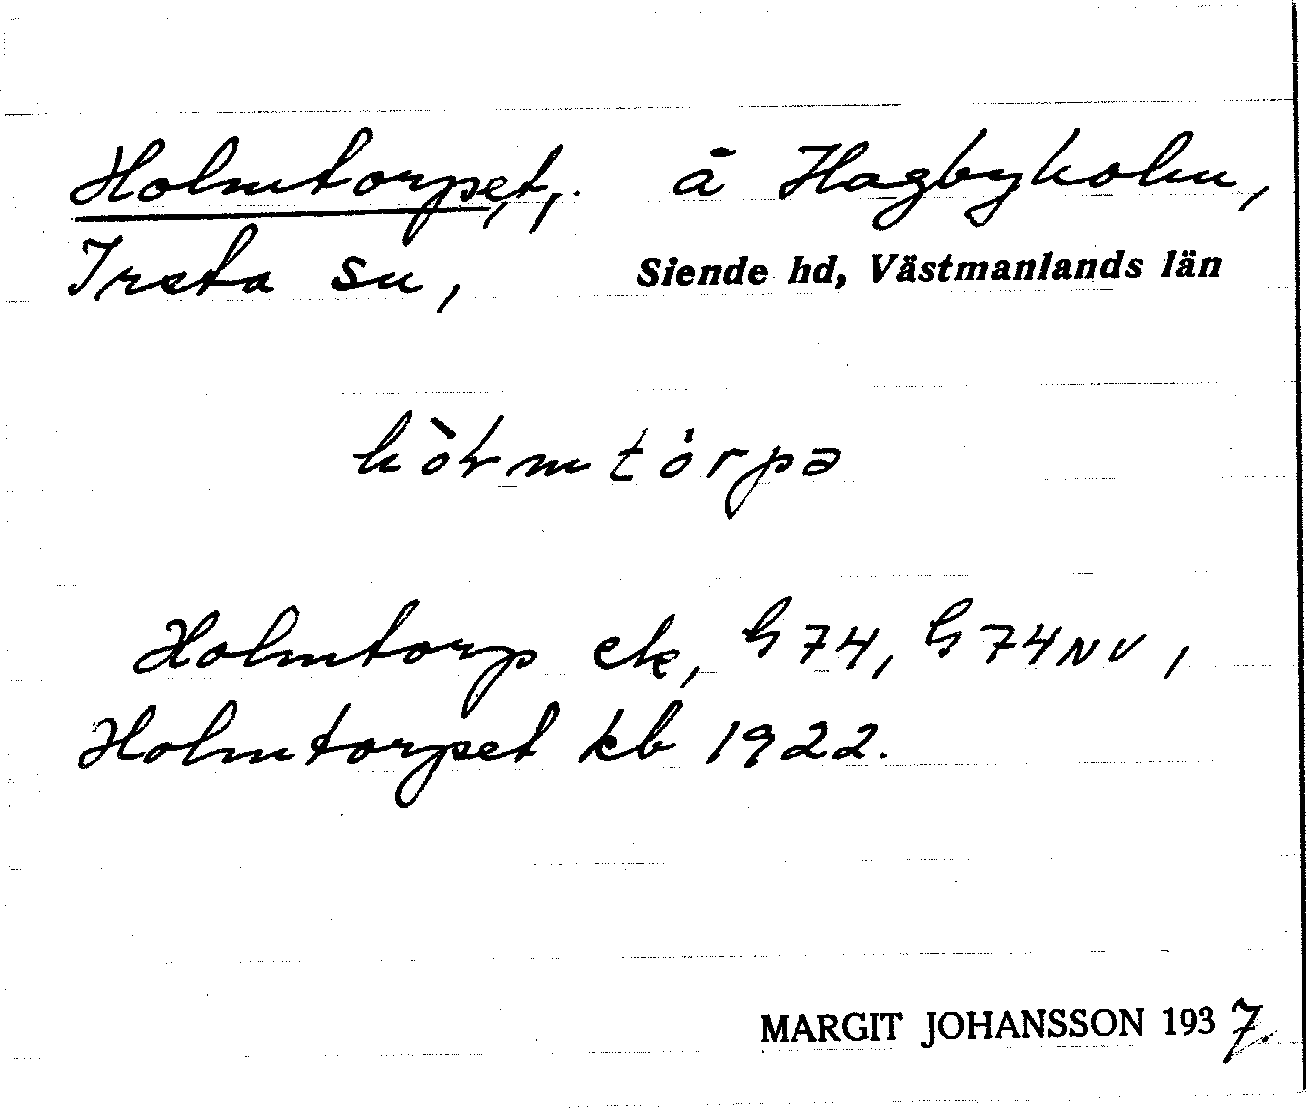 Holmtorpet, å Hagbyholm,
Ireta sn, Siende hd, Västmanlands län
hòɫmtórpə
Holmtorp ek, h 74, h 74 NV,
Holmtorpet kb 1922.
MARGIT JOHANSSON 1937